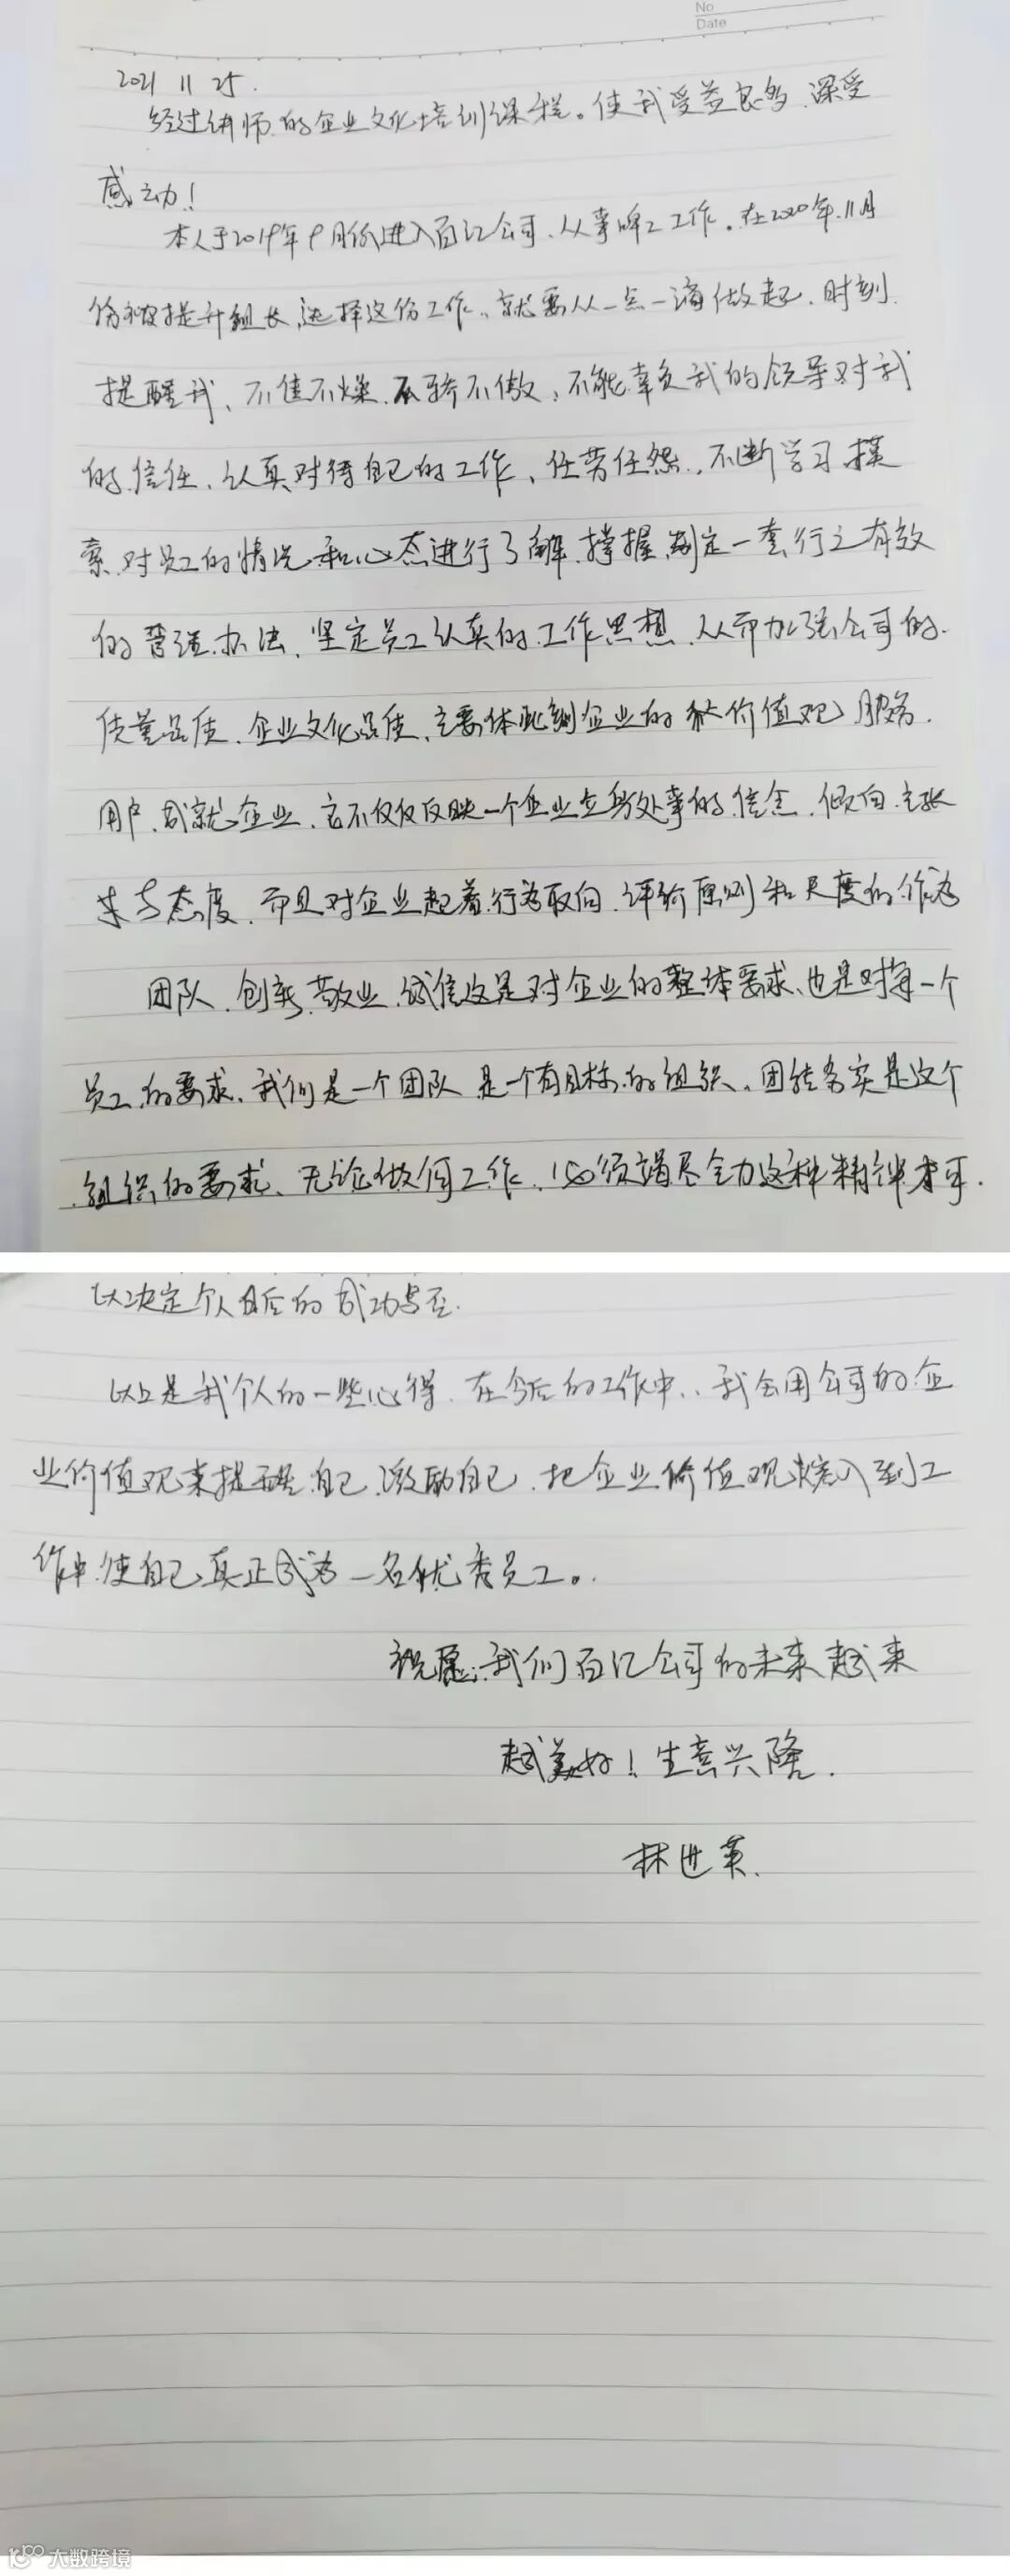 No
Date
2021 11 25.
经过讲师的企业文化培训课程。使我受益良多、深受
感动！
本人于2019年9月份进入百亿公司、从事啤工工作。在2020年.11月
份被提升组长、选择这份工作、就要从一点一滴做起、时刻
提醒我、不焦不燥、不骄不傲、不能辜负我的领导对我
的信任、认真对待自己的工作、任劳任怨、不断学习摸
索、对员工的情况和心态进行了解、撑握、制定一套行之有效
的管理办法、坚定员工认真的工作思想、从而加强公司的
质量品质、企业文化品质、主要体现到企业的核心价值观服务
用户、成就企业、它不仅仅反映一个企业立身处事的信念、倾向、主张
态度、而且对企业起着行为取向、评价原则和尺度的作为
团队、创新、敬业、诚信这是对企业的整体要求、也是对每一个
员工的要求、我们是一个团队是一个有目标的组织、团结务实是这个
组织的要求、无论做何工作、必须竭尽全力这种精神才可.
以决定个人日后的成功与否.
以上是我个人的一些心得、在今后的工作中、我会用公司的企
业价值观来提醒自己、激励自己、把企业价值观入到工
作中、使自己真正成为一名优秀员工。
祝愿：我们百亿公司的未来越来
越美好！生意兴隆.
林进英.
大数跨境